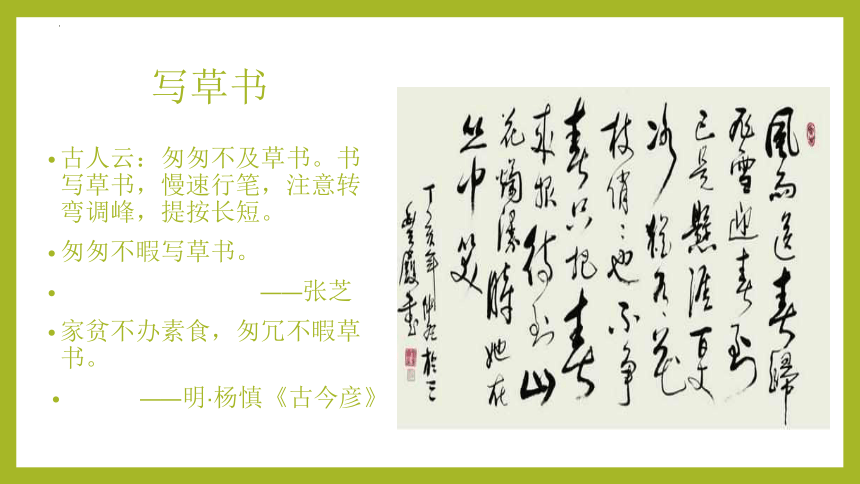 写草书
古人云：匆匆不及草书。书
写草书，慢速行笔，注意转
弯调峰，提按长短。
匆匆不暇写草书。
——张芝
家贫不办素食，匆冗不暇草
书。
——明·杨慎《古今彦》
風雨送春歸
飛雪迎春到
已是懸崖百丈
冰猶有花
枝俏俏也不争
春只把春
来报待到山
花爛漫時她在
丛中笑
丁亥年